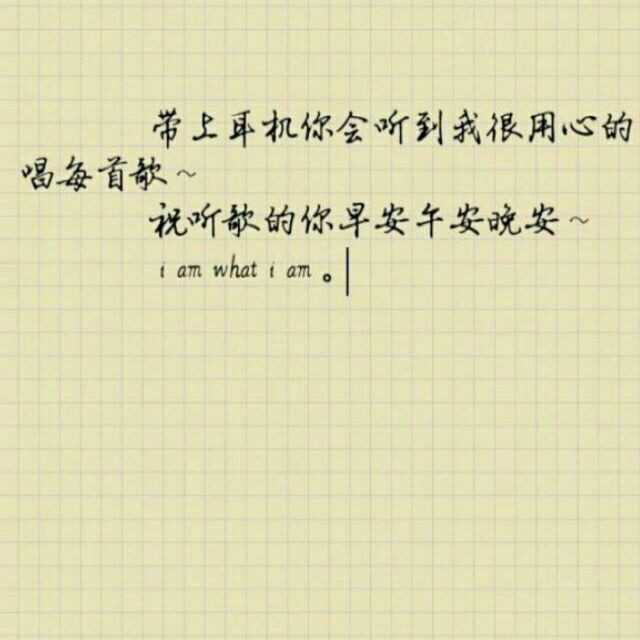 带上耳机你会听到我很用心的
唱每首歌~
祝听歌的你早安午安晚安~
i am what i am。